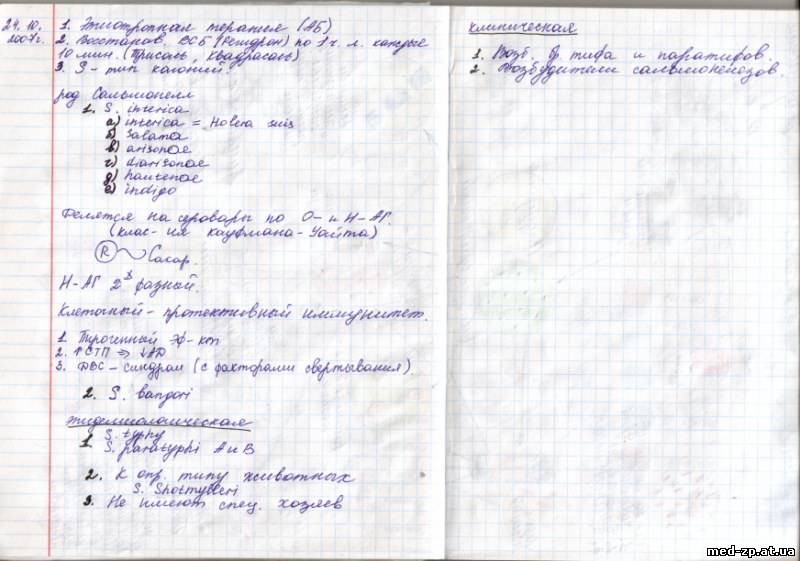 24.10.
2007г.
1. Этиотропная терапия (АБ)
2. Восстанов. ВСБ (Регидрон) по 1 ч. л. каждые
10 мин. (Трисоль, Квадрасоль)
3. S-тип колоний.
род Сальмонелл
1. S. interica
а) interica = Holera suis
б) salama
в) arisonae
г) diarisonae
д) hautenae
е) indigo
Делятся на серовары по О- и Н-АГ.
(клас-ия Кауфмана-Уайта)
R Сахар.
Н-АГ 2х фазный.
Клеточный-протективный иммунитет.
1. Пирогенный эф-кт
2. ↑СТП ⇒ ↓АД
3. ДВС-синдром (с факторами свертывания).
2. S. bangori
эпидемиологическая
1. S. typhy
S. paratyphi А и В
2. К опр. типу животных
S.
3. Не имеют спец. хозяев
клиническая
1. Возб. бр. тифа и паратифов.
2. Возбудители сальмонелёзов.
med-zp.at.ua